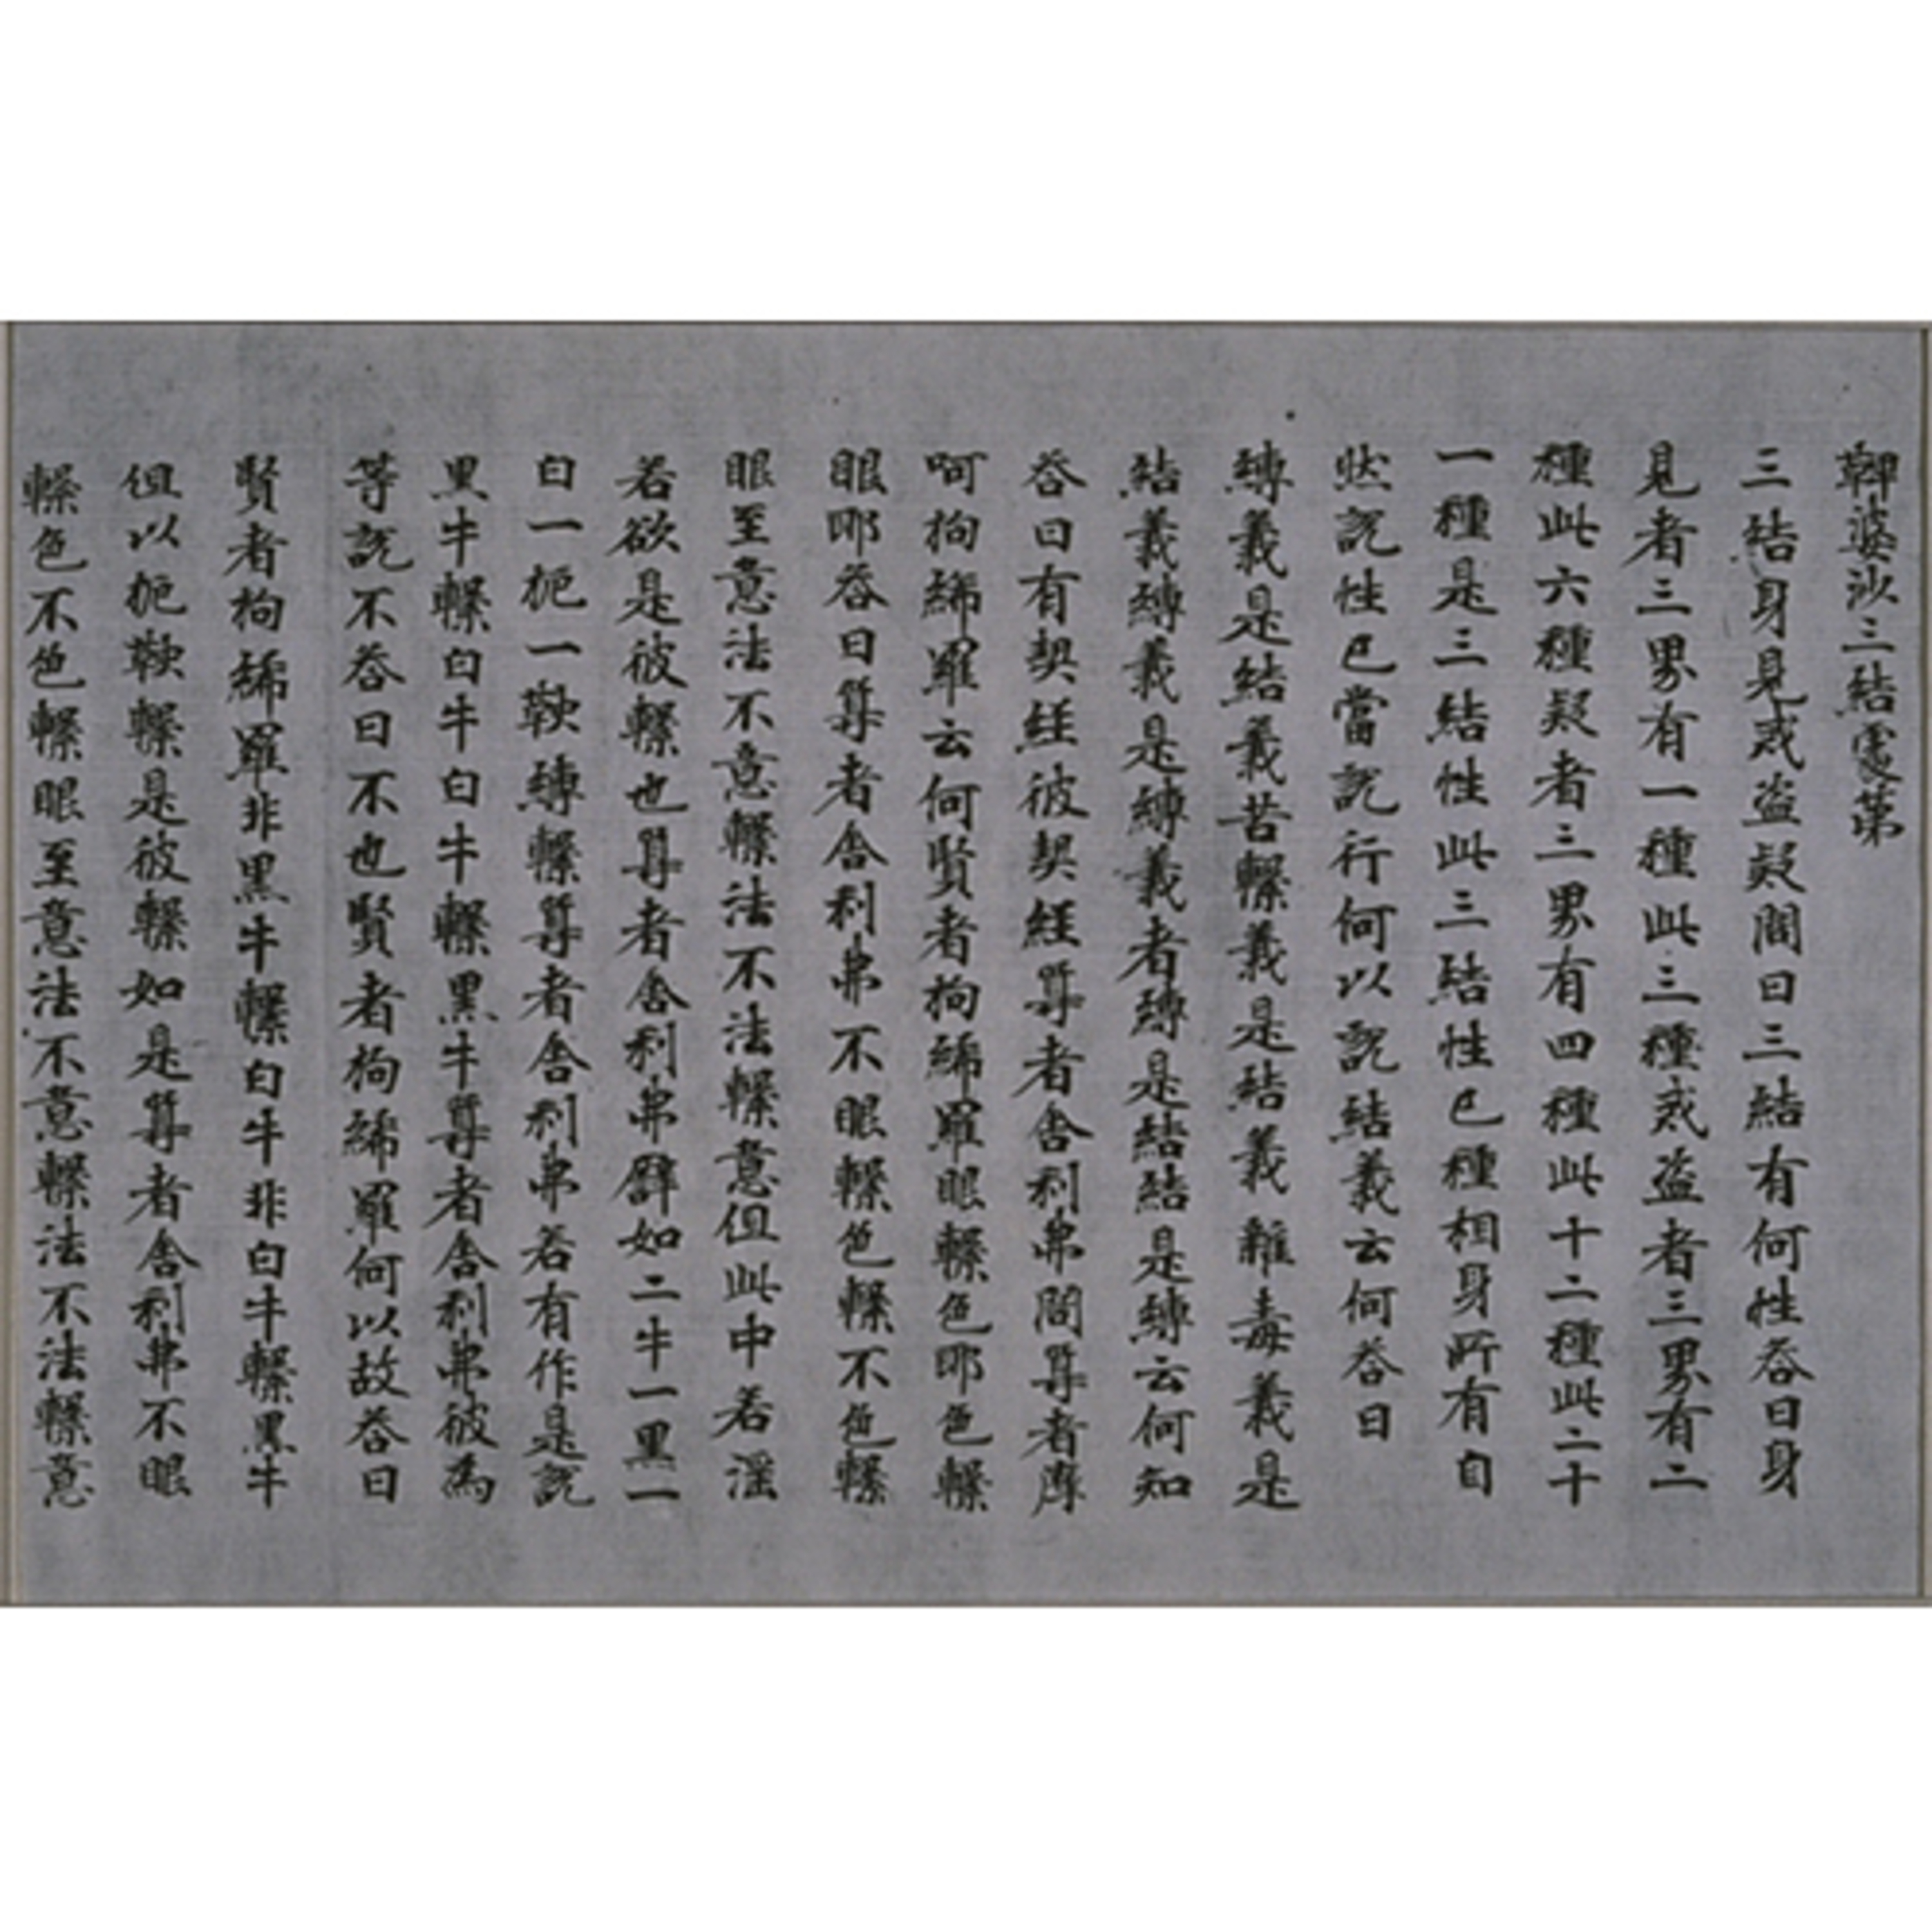 鞞婆沙三結處第
三結身見戒盜疑問曰三結有何性答曰身
見者三界有一種此三種戒盜者三界有二
種此六種疑者三界有四種此十二種此二十
一種是三結性此三結性已種相身所有自
然說性已當說行何以說結義云何答曰
縛義是結義苦繫義是結義雜毒義是
結義縛義是縛義者縛是結結是縛云何知
答曰有契經彼契經尊者舍利弗問尊者摩
呵拘絺羅云何賢者拘絺羅眼繫色耶色繫
眼耶答曰尊者舍利弗不眼繫色繫不色繫
眼至意法不意繫法不法繫意但此中若婬
若欲是彼繫也尊者舍利弗譬如二牛一黑一
白一軛一鞅縛繫尊者舍利弗若有作是說
黑牛繫白牛白牛繫黑牛尊者舍利弗彼為
等說不答曰不也賢者拘絺羅何以故答曰
賢者拘絺羅非黑牛繫白牛非白牛繫黑牛
但以軛鞅繫是彼繫如是尊者舍利弗不眼
繫色不色繫眼至意法不意繫法不法繫意